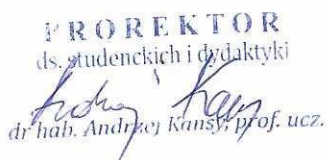 PROREKTOR
ds. studenckich i dydaktyki
dr hab. Andrzej Kansy, prof. ucz.